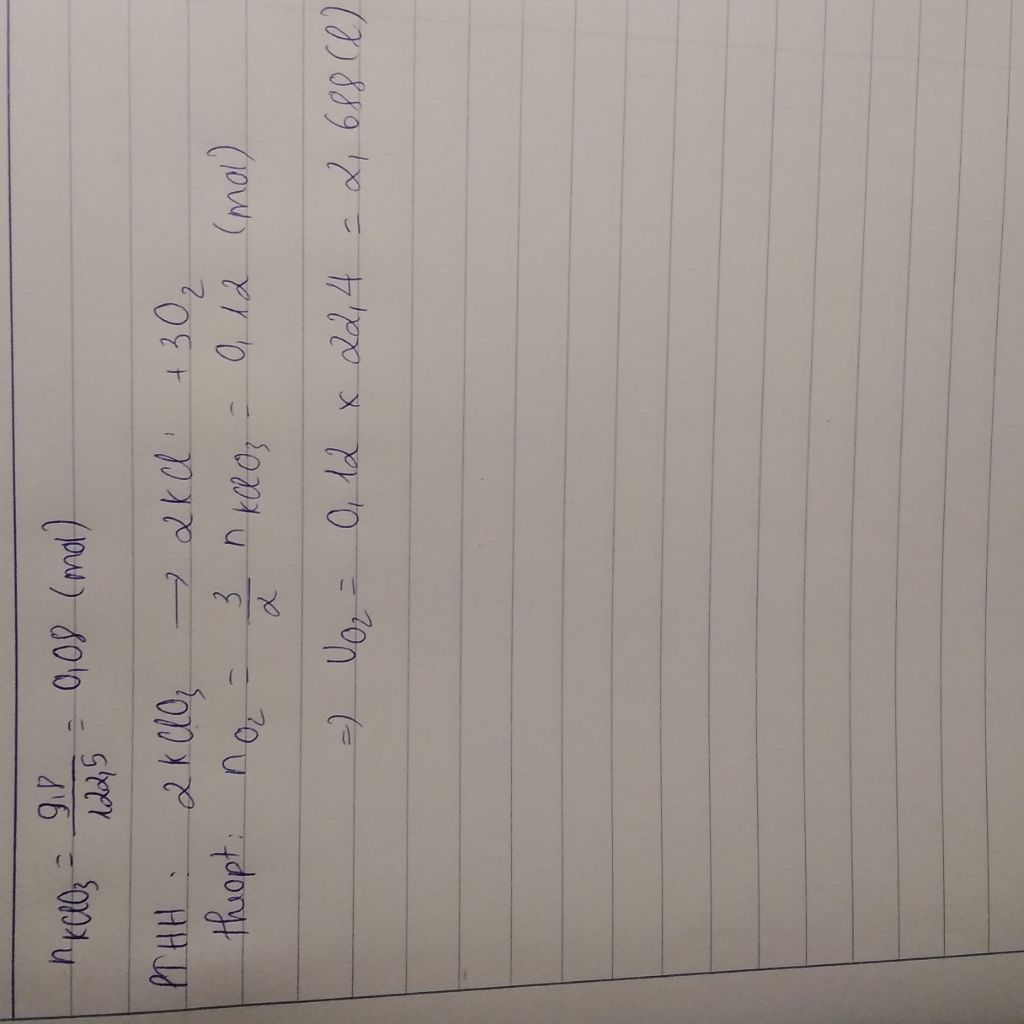 n KClO₃ = 9,8/122,5 = 0,08 (mol)
PTHH: 2KClO₃ → 2KCl + 3O₂
theopt: nO₂ = 3/2 n KClO₃ = 0,12 (mol)
=> VO₂ = 0,12 x 22,4 = 2,688 (l)